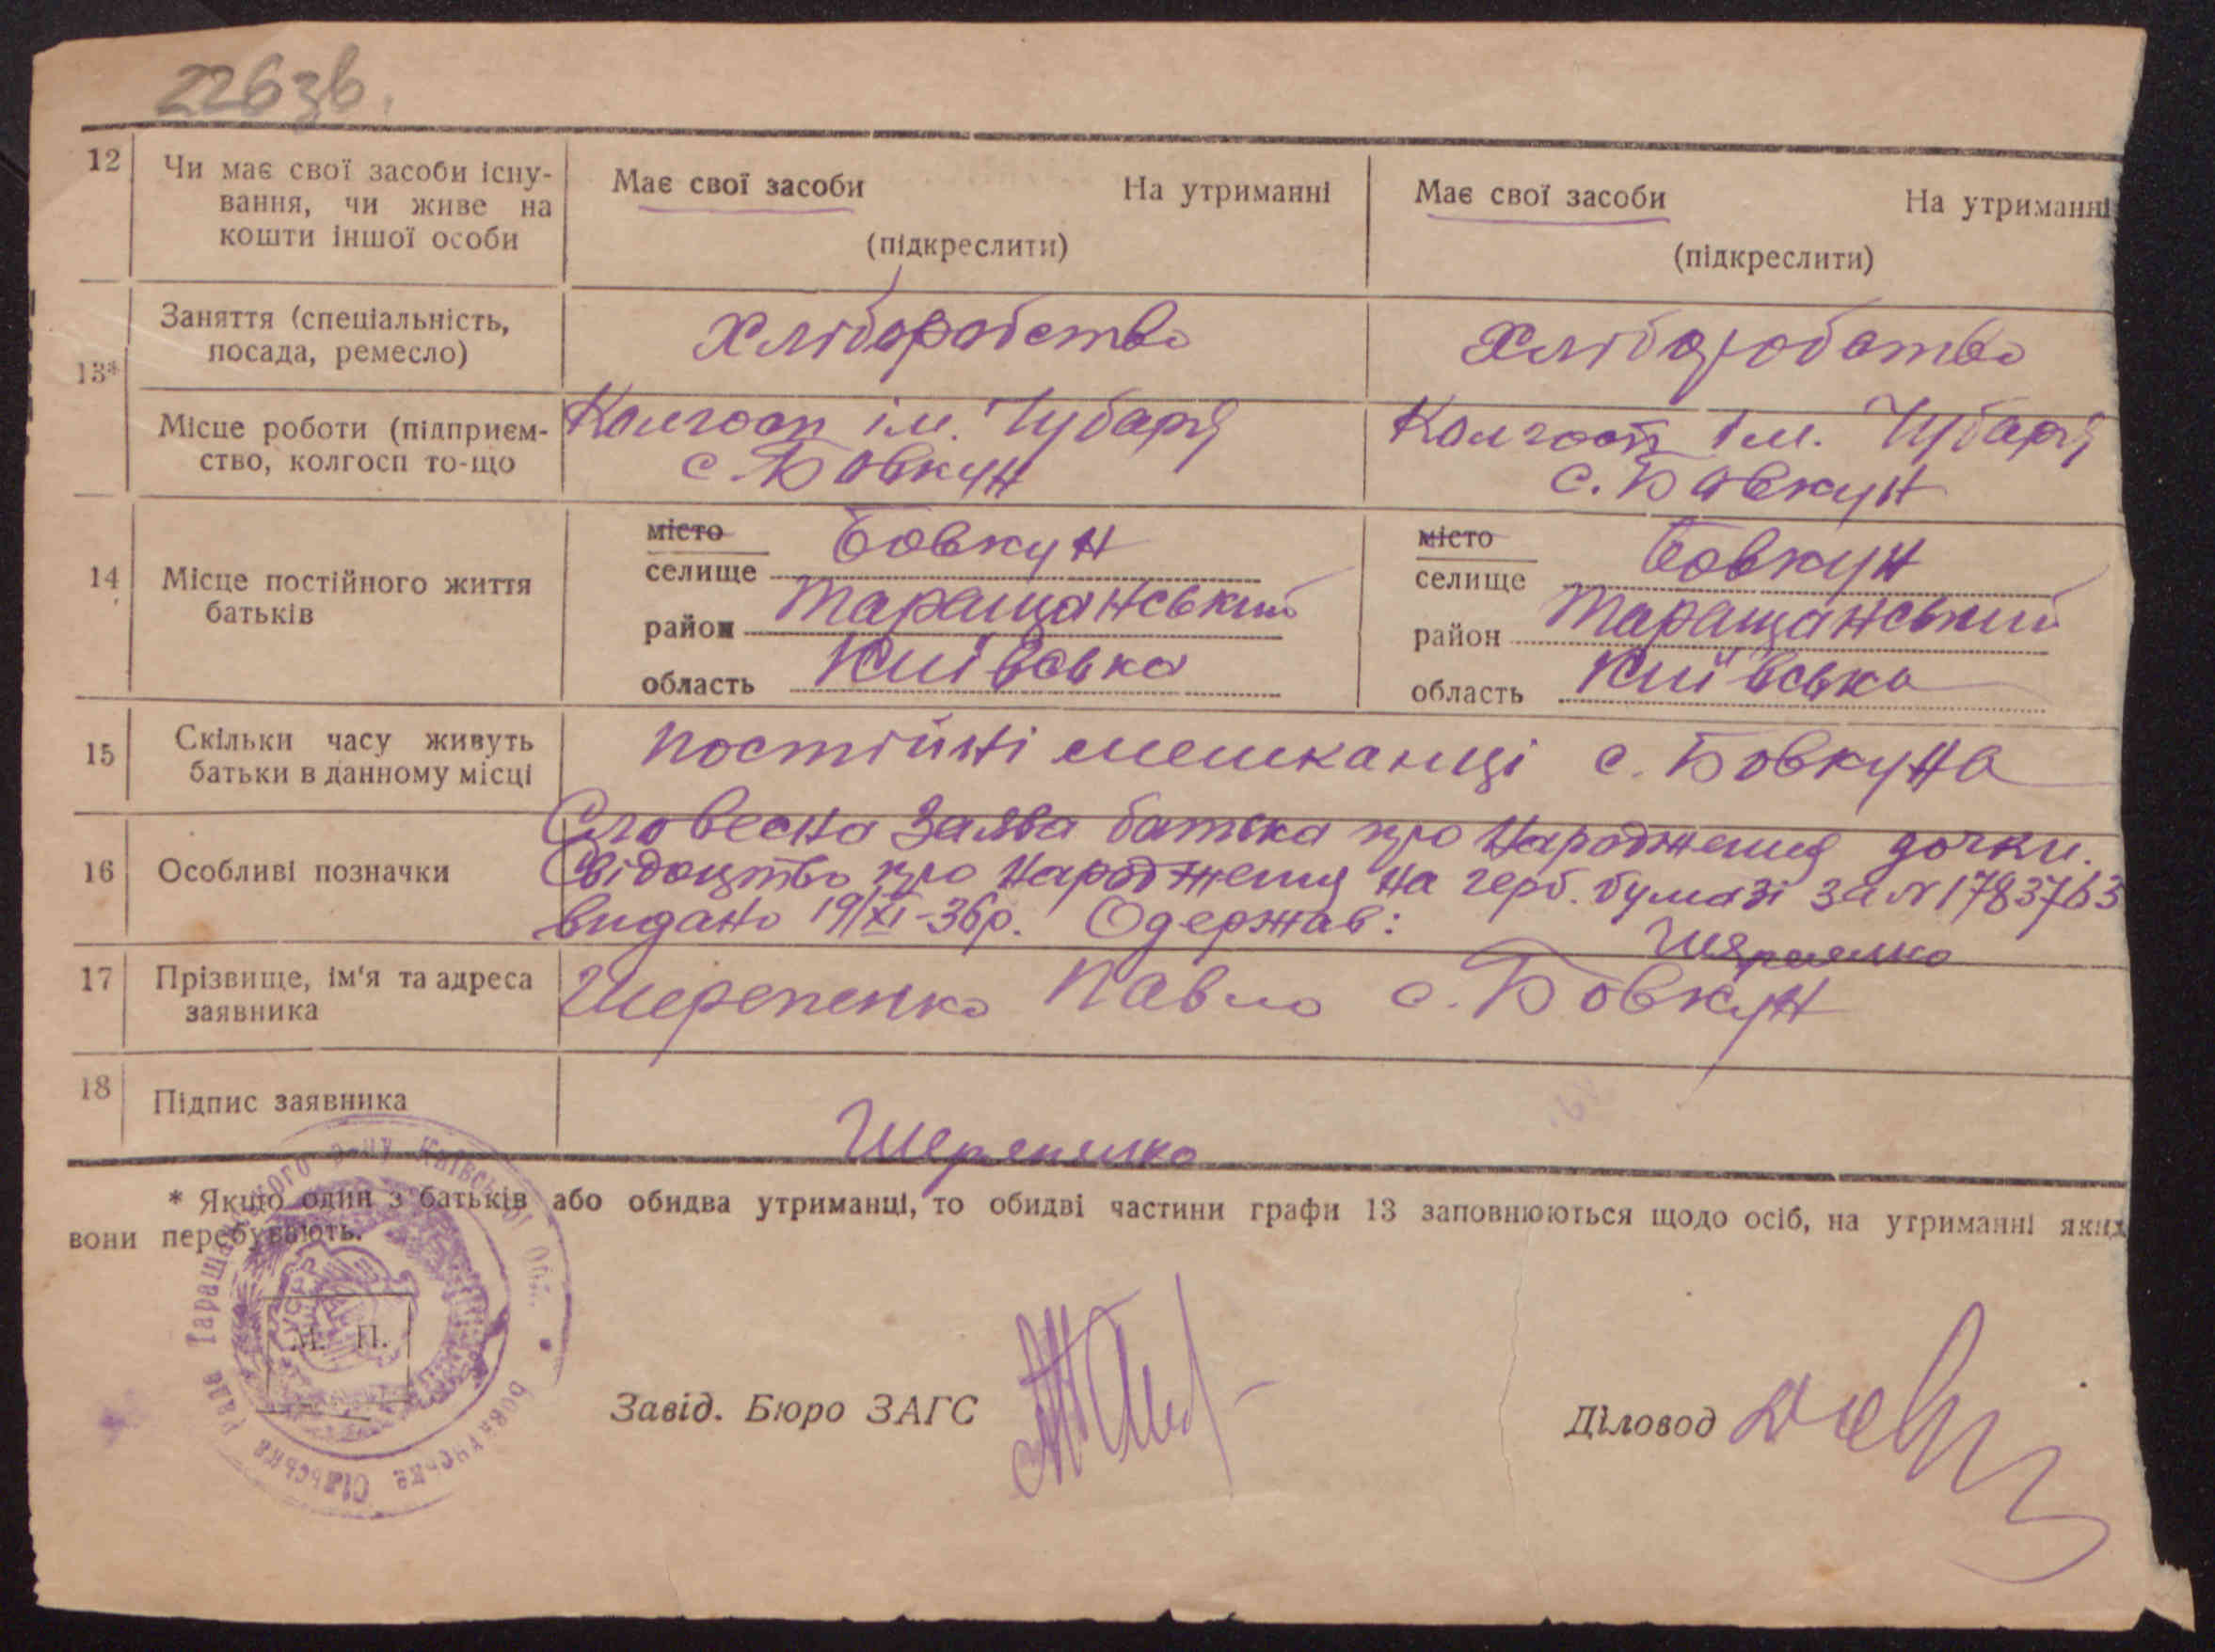 2263в.
12 Чи має свої засоби існу-
вання, чи живе на
кошти іншої особи
Має свої засоби На утриманні
(підкреслити)
Має свої засоби На утриманні
(підкреслити)
13* Заняття (спеціальність,
посада, ремесло)
Хліборобство
Хліборобство
Місце роботи (підприєм-
ство, колгосп то-що
Колгосп ім. Чубаря
с. Бовкун
Колгосп ім. Чубаря
с. Бовкун
14 Місце постійного життя
батьків
місто
селище Бовкун
район Таращанський
область Київська
місто
селище Бовкун
район Таращанський
область Київська
15 Скільки часу живуть
батьки в данному місці
постійні мешканці с. Бовкуна
16 Особливі позначки
Словесна заява батька про народження дочки.
Свідоцтво про народження на герб. бумазі за N 1783763
видано 19/XI-36р. Одержав:
Шерепенко
17 Прізвище, ім'я та адреса
заявника
Шерепенко Павло с. Бовкун
18 Підпис заявника
Шерепенко
* Якщо один з батьків або обидва утриманці, то обидві частини графи 13 заповнюються щодо осіб, на утриманні яких
вони перебувають.
Бовкунська Сільська Рада Таращанського р-ну Київської Обл.
УСРР
М. П.
Завід. Бюро ЗАГС
Діловод